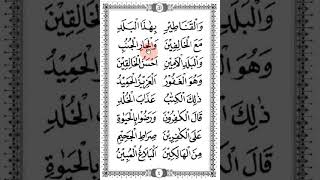 وَالْقَنَاطِيرِ بِهٰذَا الْبَلَدِ
مَعَ الْخَالِفِينَ وَالْجَارِ الْجُنُبِ
وَالْبَلَدِ الْاَمِينِ اَحْسَنُ الْخَالِقِينَ
وَهُوَ الْغَفُورُ الْعَزِيزُ الْحَمِيدُ
ذٰلِكَ الْكِتٰبُ عَذَابَ الْخُلْدِ
قَالَ الْكٰفِرُونَ وَرَضُوا بِالْحَيٰوةِ
عَلَى الْكٰفِرِينَ صِرَاطِ الْجَحِيمِ
مِنَ الْهَالِكِينَ الْبَلَاغُ الْمُبِينُ